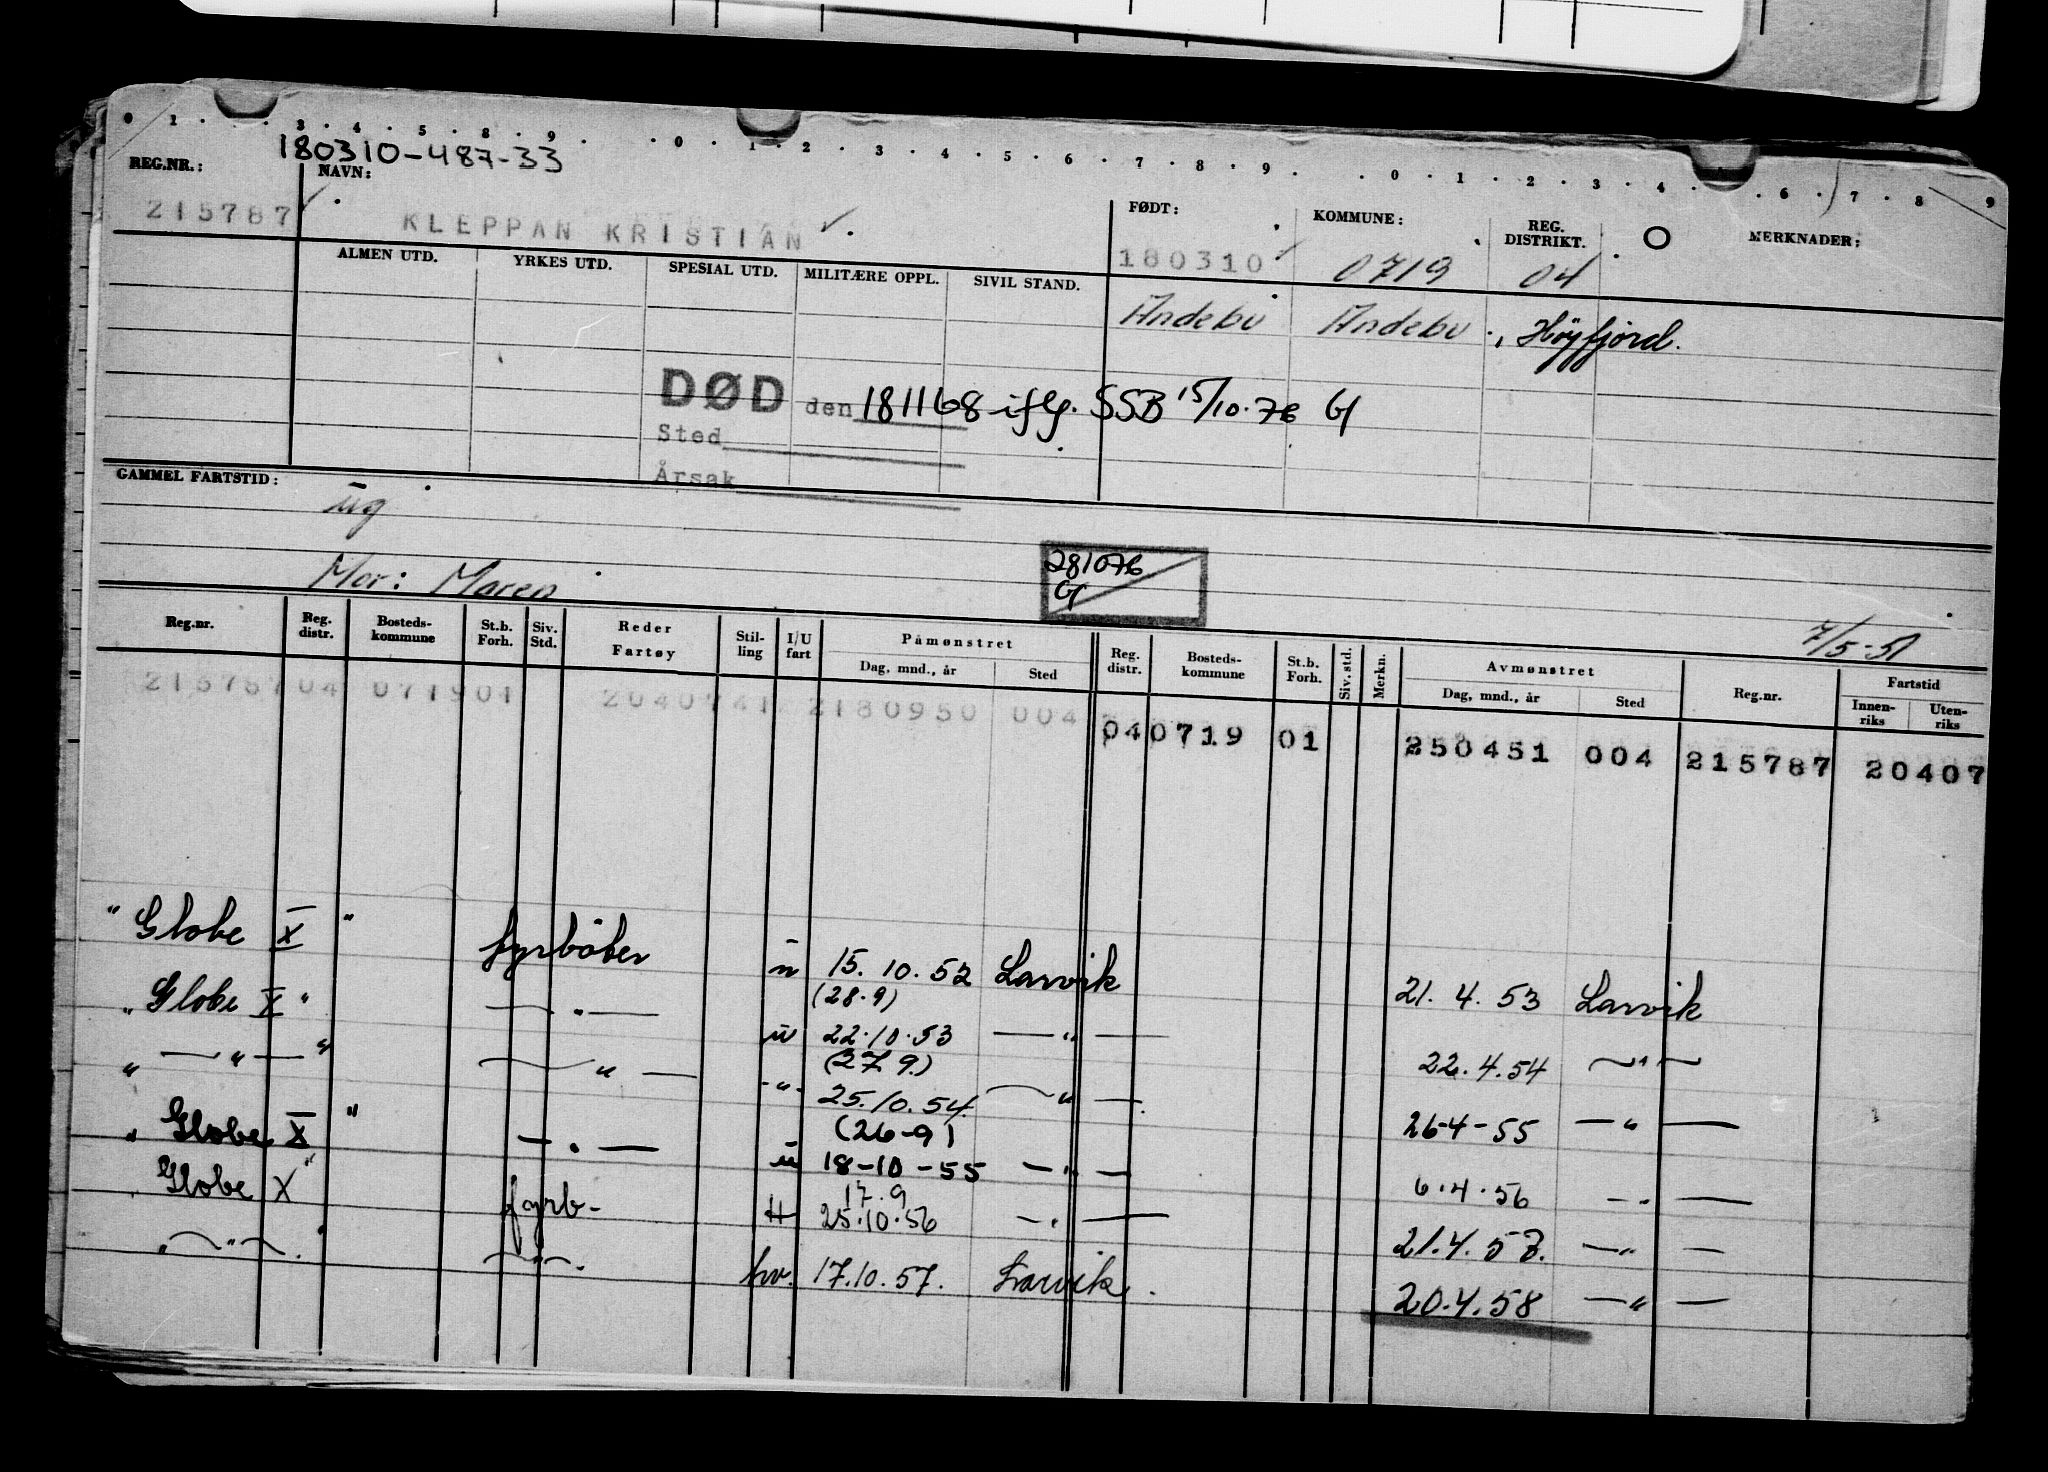 0 1 . . 3 . 4 . 5 . 8 . 9 . . 0 . 1 . 2 . 3 . 4 . 5 . 6 . 7 . 8 . 9 . . 0 . 1 . 2 . 3 . 4 . . 6 . 7 . 8 . 9
180310-487-33
REG.NR.: NAVN: FØDT: KOMMUNE: REG. DISTRIKT. O MERKNADER:
215787 KLEPPAN KRISTIAN 180310 0719 04
ALMEN UTD. YRKES UTD. SPESIAL UTD. MILITÆRE OPPL. SIVIL STAND.
Andebu Andebu Höyjord.
DØD den 181168 iflg. SSB 15/10.76 G
Sted
Årsak
GAMMEL FARTSTID:
ug
281076
G
Mor: Maren
7/5-51
Reg.nr. Reg. distr. Bosteds- kommune St.b. Forh. Siv. Std. Reder Fartøy Stil- ling I/U fart Påmønstret Dag, mnd., år Sted Reg. distr. Bosteds- kommune St.b. Forh. Siv. std. Merkn. Avmønstret Dag, mnd., år Sted Reg.nr. Fartstid Innen- riks Uten- riks
215787 04 0719 01 2040741 2180950 004 04 0719 01 250451 004 215787 20407
"Globe X" fyrböter u 15.10.52 Larvik 21.4.53 Larvik
(28.9)
"Globe X" — " — u 22.10.53 — " — 22.4.54 — " —
(27.9.)
" — " — " — " — - " - 25.10.54 — " — 26-4-55 — " —
(26-9)
"Globe X" — " — u 18-10-55 — " — 6.4.56 — " —
17.9
"Globe X" fyrb- H 25.10.56 — " — 21.4.57. — " —
" — " — " — " — hv. 17.10.57. Larvik. 20.4.58 — " —